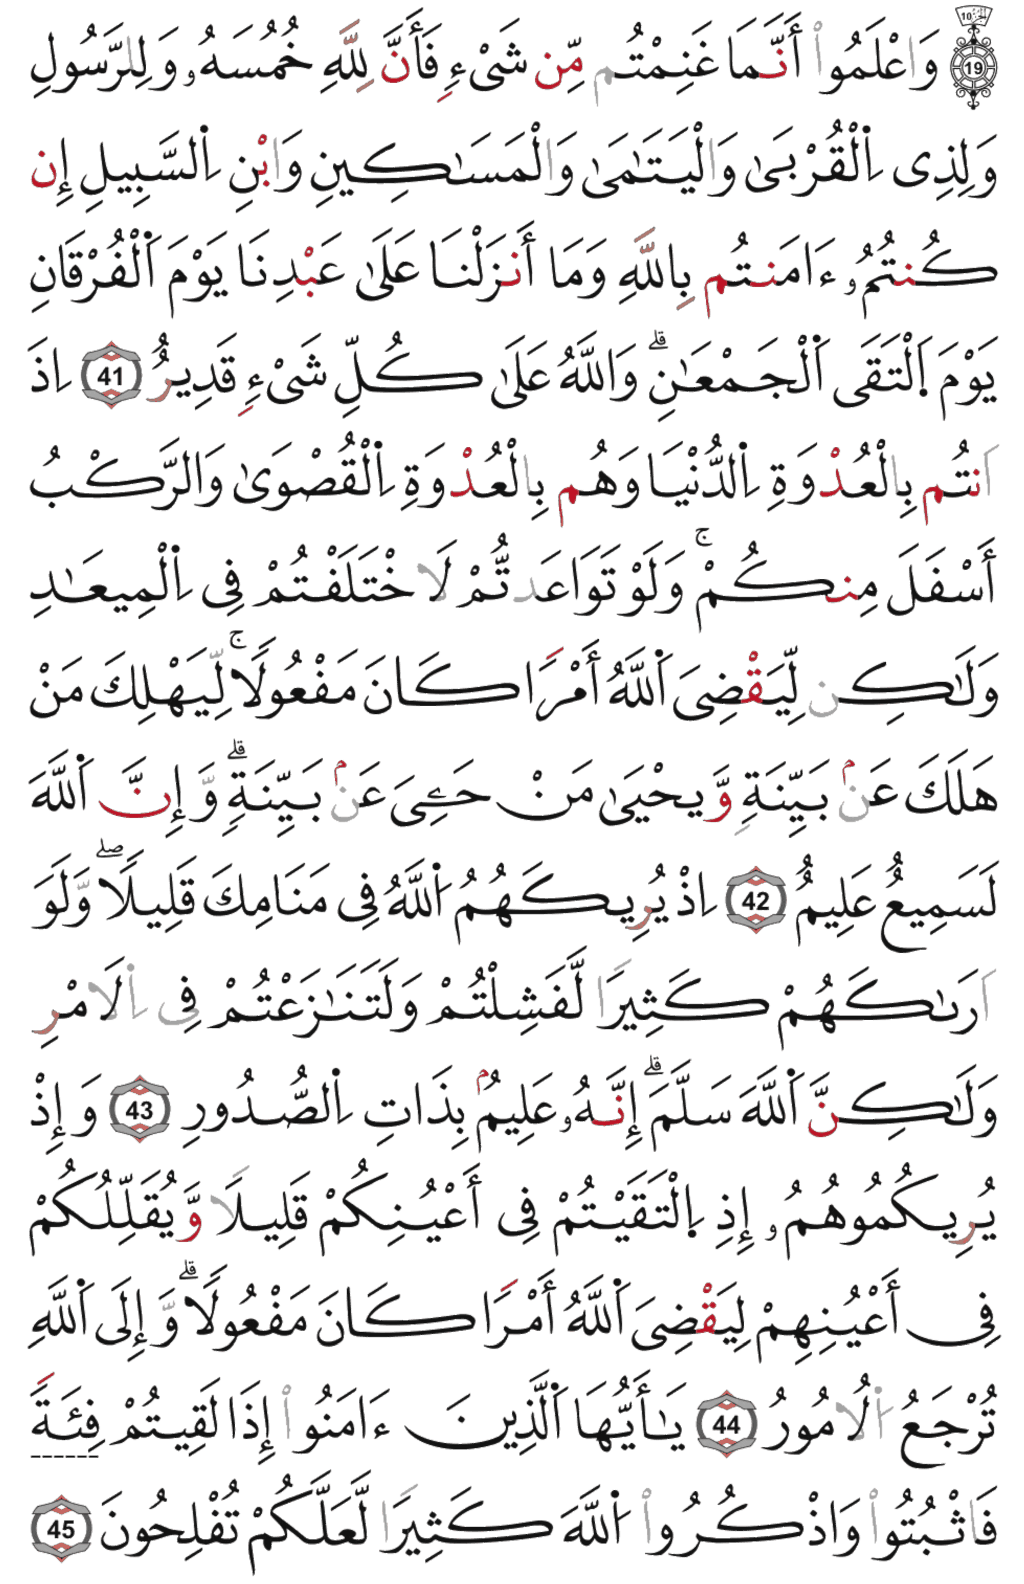 الحزب 10
19 وَاعْلَمُواْ أَنَّمَا غَنِمْتُم مِّن شَىْءٍ فَأَنَّ لِلَّهِ خُمُسَهُۥ وَلِلرَّسُولِ
وَلِذِى اِ۬لْقُرْبَىٰ وَالْيَتَٰمَىٰ وَالْمَسَٰكِينِ وَابْنِ اِ۬لسَّبِيلِ إِن
كُنتُمُۥ ءَامَنتُم بِاللَّهِ وَمَا أَنزَلْنَا عَلَىٰ عَبْدِنَا يَوْمَ اَ۬لْفُرْقَانِ
يَوْمَ اَ۪لْتَقَى اَ۬لْجَمْعَٰنِۗ وَاللَّهُ عَلَىٰ كُلِّ شَىْءٍ قَدِيرٌ 41 اِذَ
اَنتُم بِالْعُدْوَةِ اِ۬لدُّنْيَا وَهُم بِالْعُدْوَةِ اِ۬لْقُصْوَىٰ وَالرَّكْبُ
أَسْفَلَ مِنكُمْۚ وَلَوْ تَوَاعَدتُّمْ لَاخْتَلَفْتُمْ فِى اِ۬لْمِيعَٰدِ
وَلَٰكِن لِّيَقْضِىَ اَ۬للَّهُ أَمْرًا كَانَ مَفْعُولًاۚ لِّيَهْلِكَ مَنْ
هَلَكَ عَنۢ بَيِّنَةٍ وَّيَحْيَىٰ مَنْ حَيِىَ عَنۢ بَيِّنَةٍۗ وَّإِنَّ اَ۬للَّهَ
لَسَمِيعٌ عَلِيمٌ 42 اِذْ يُرِيكَهُمُ اُ۬للَّهُ فِى مَنَامِكَ قَلِيلًاۖ وَّلَوَ
اَرَىٰكَهُمْ كَثِيرًا لَّفَشِلْتُمْ وَلَتَنَٰزَعْتُمْ فِى اِ۬لَامْرِ
وَلَٰكِنَّ اَ۬للَّهَ سَلَّمَۗ إِنَّهُۥ عَلِيمُۢ بِذَاتِ اِ۬لصُّدُورِ 43 وَإِذْ
يُرِيكُمُوهُمُۥ إِذِ اِ۪لْتَقَيْتُمْ فِى أَعْيُنِكُمْ قَلِيلًا وَّيُقَلِّلُكُمْ
فِى أَعْيُنِهِمْ لِيَقْضِىَ اَ۬للَّهُ أَمْرًا كَانَ مَفْعُولًاۗ وَّإِلَى اَ۬للَّهِ
تُرْجَعُ اُ۬لُامُورُ 44 يَٰأَيُّهَا اَ۬لَّذِينَ ءَامَنُواْ إِذَا لَقِيتُمْ فِئَةً
فَاثْبُتُواْ وَاذْكُرُواْ اُ۬للَّهَ كَثِيرًا لَّعَلَّكُمْ تُفْلِحُونَ 45